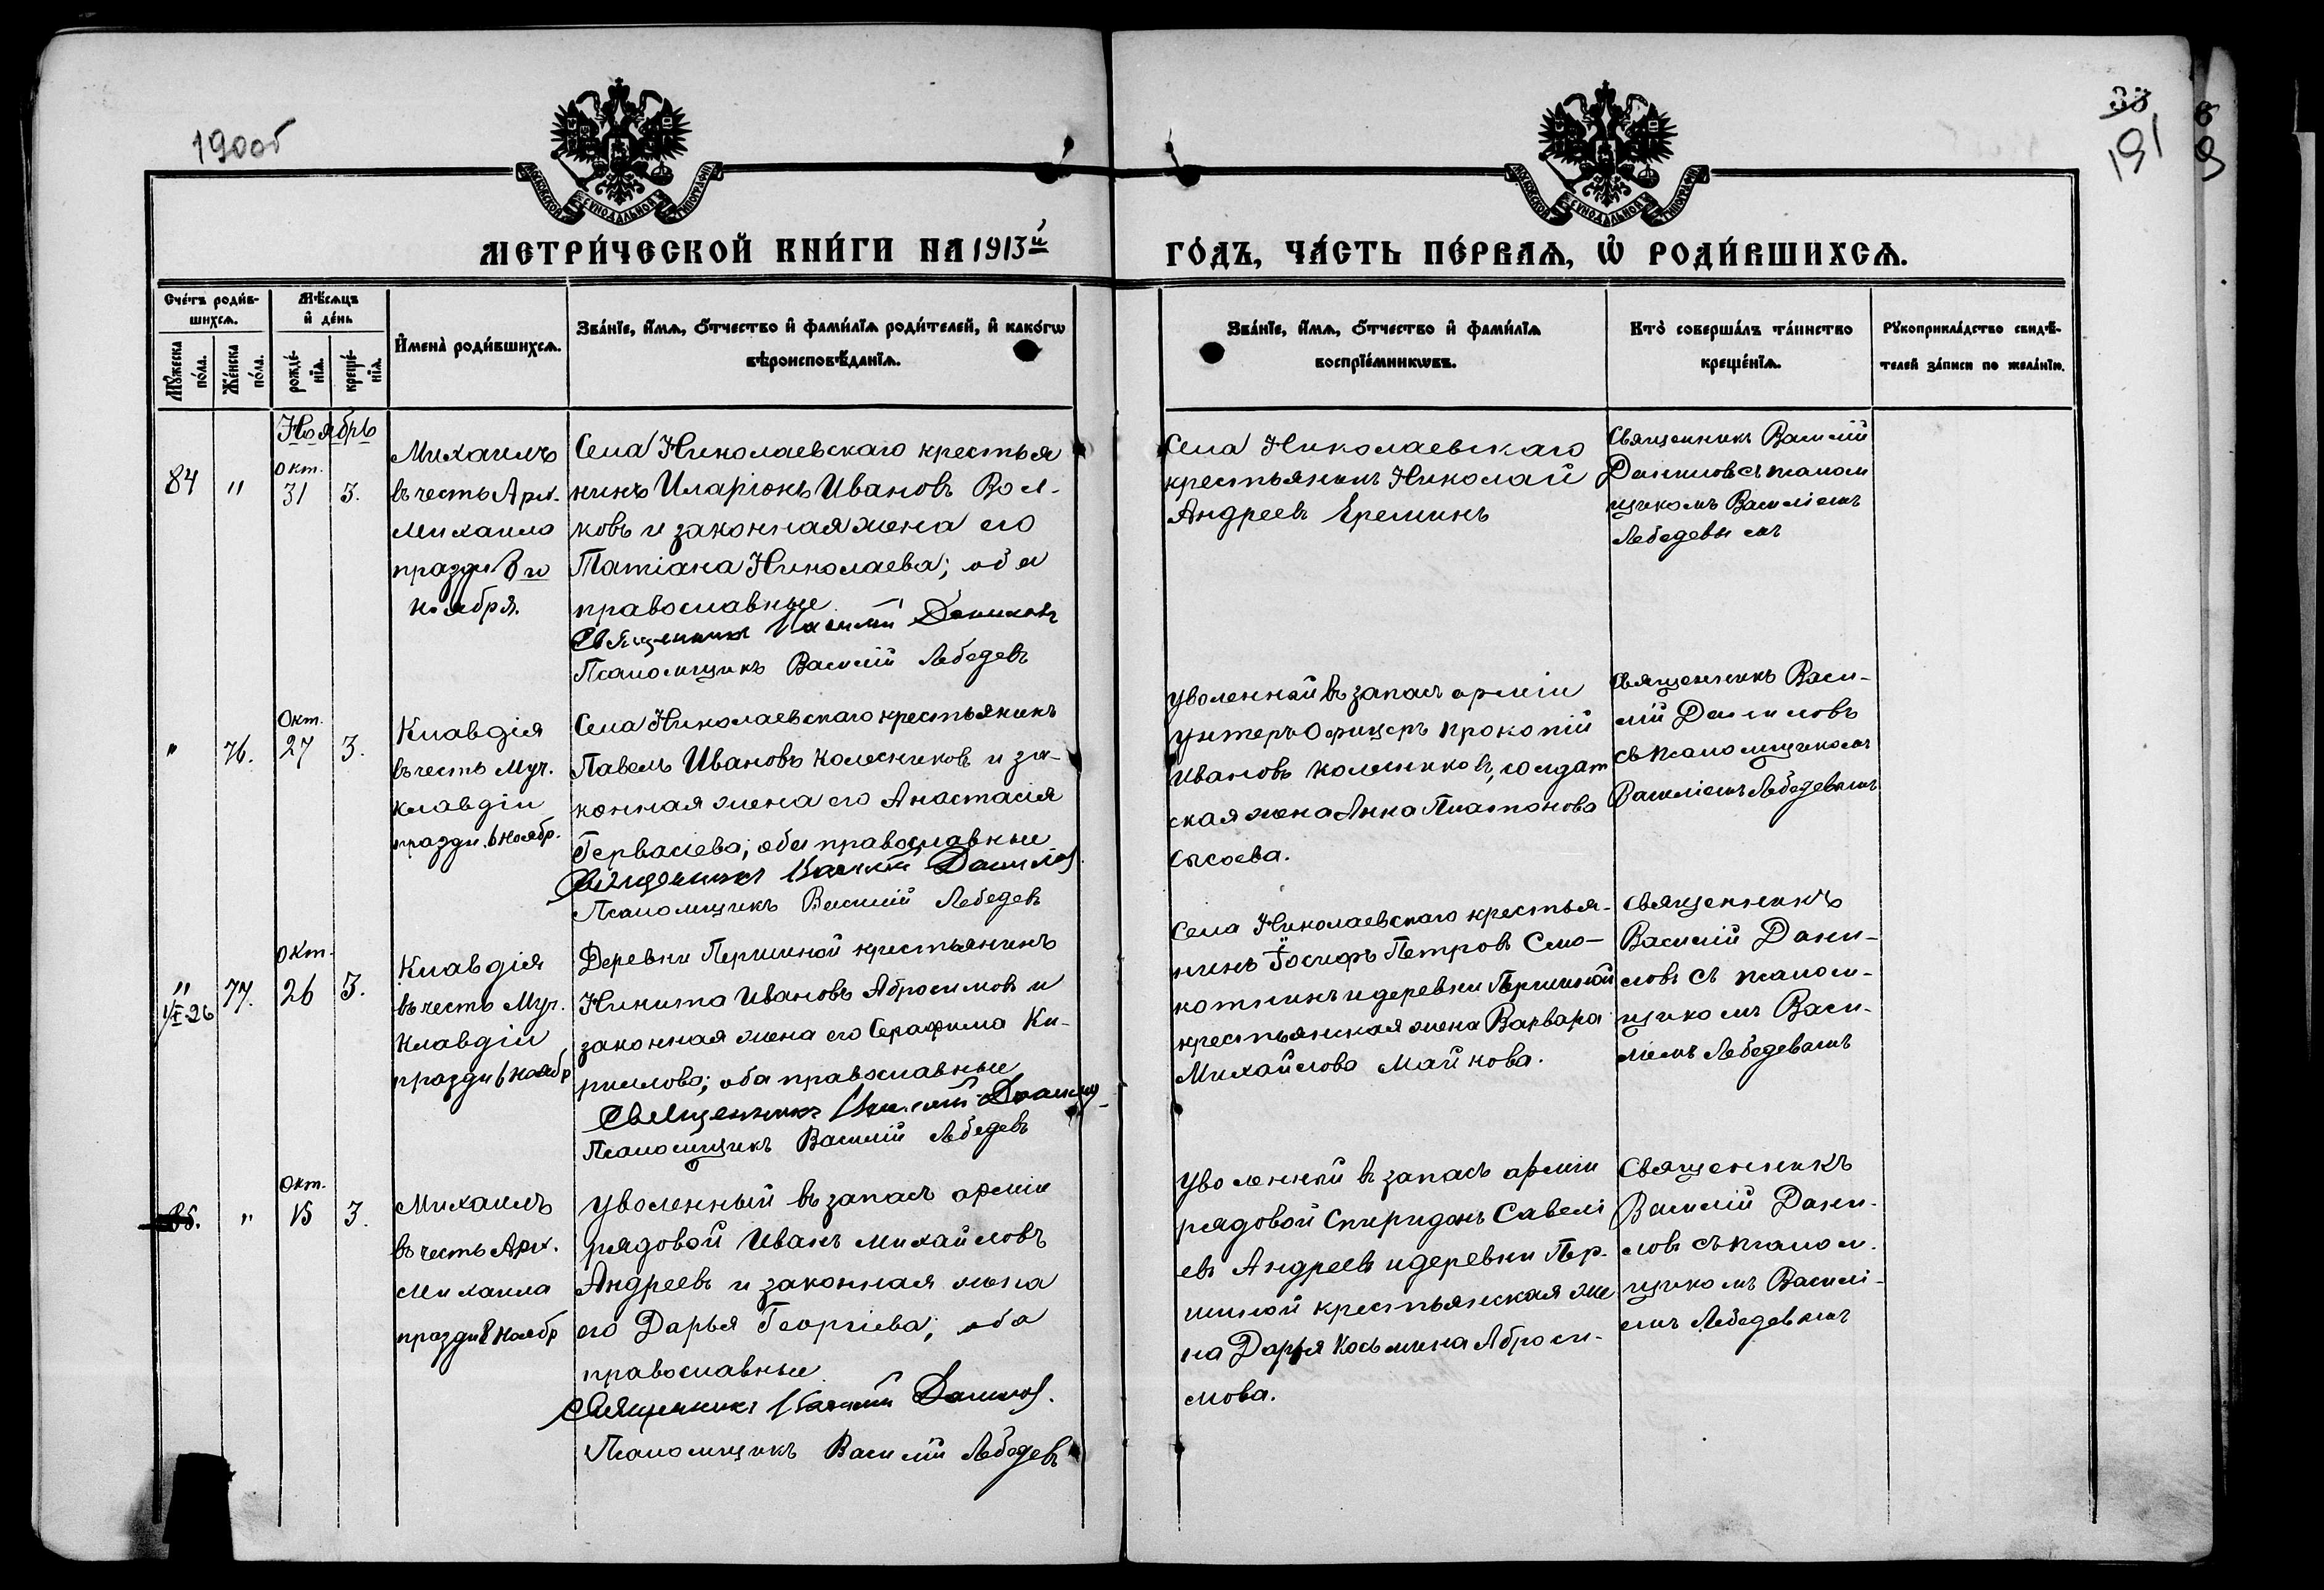 1900б
33
191
МОСКОВСКОЙ СѴНОДАЛЬНОЙ ТИПОГРАФІИ
МОСКОВСКОЙ СѴНОДАЛЬНОЙ ТИПОГРАФІИ
МЕТРИ́ЧЕСКОЙ КНИ́ГИ НА 1913й
ГО́ДЪ, ЧА́СТЬ ПЕ́РВАѦ, Ѽ РОДИ́ВШИХСѦ.
Сче́тъ роди́в-
шихсѧ.
Мꙋ́жеска
по́ла.
Же́нска
по́ла.
Мѣ́сѧцъ
и҆ де́нь
рожде́-
нїѧ.
креще́-
нїѧ.
И҆мена̀ роди́вшихсѧ.
Зва́нїе, и҆́мѧ, ѻ҆́тчество и҆ фами́лїѧ роди́телей, и҆ како́гѡ
вѣроисповѣ́данїѧ.
Зва́нїе, и҆́мѧ, ѻ҆́тчество и҆ фами́лїѧ
воспрїе́мникѡвъ.
Кто̀ соверша́лъ та́инство
креще́нїѧ.
Рꙋкоприкла́дство свидѣ́-
телей за́писи по жела́нїю.
Ноябрь
84
"
окт.
31
3.
Михаилъ
въ честь Арх.
Михаила
праздн 8 го
ноября.
Села Николаевскаго крестья
нинъ Иларіонъ Ивановъ Вол-
ковъ и законная жена его
Татіана Николаева; оба
православные
Священникъ Василій Даниловъ
Псаломщикъ Василій Лебедевъ
Села Николаевскаго
крестьянинъ Николай
Андреевъ Ереминъ
Священникъ Василій
Даниловъ съ псалом
щикомъ Василіемъ
Лебедевымъ
"
76.
Окт.
27
3.
Клавдія
въ честь Муч.
Клавдіи
праздн. 6 ноябр.
Села Николаевскаго крестьянинъ
Павелъ Ивановъ Колесниковъ и за-
конная жена его Анастасія
Гервасіева; оба православные
Священникъ Василій Даниловъ
Псаломщикъ Василій Лебедевъ
Уволенный въ запасъ арміи
унтеръ офицеръ Прокопій
Ивановъ Колесниковъ, солдат
ская жена Анна Платонова
Сысоева.
Священникъ Васи-
лій Даниловъ
съ псаломщикомъ
Василіемъ Лебедевымъ
"
1/X-26
77.
окт.
26
3.
Клавдія
въ честь Муч.
Клавдіи
праздн 6 ноябр
Деревни Першиной крестьянинъ
Никита Ивановъ Абросимовъ и
законная жена его Серафима Ки-
риллова; оба православные
Священникъ Василій Данилов
Псаломщикъ Василій Лебедевъ
Села Николаевскаго крестья-
нинъ Іосифъ Петровъ Смо-
котнинъ и деревни Першиной
крестьянская жена Варвара
Михайлова Майкова.
Священникъ
Василій Дани-
ловъ съ псалом-
щикомъ Васи-
ліемъ Лебедевымъ
85.
"
окт.
15
3.
Михаилъ
въ честь Арх.
Михаила
праздн 8 ноябр
Уволенный въ запасъ арміи
рядовой Иванъ Михайловъ
Андреевъ и законная жена
его Дарья Георгіева; оба
православные
Священникъ Василій Даниловъ.
Псаломщикъ Василій Лебедевъ
Уволенный въ запасъ арміи
рядовой Спиридонъ Савелі
евъ Андреевъ и деревни Пер-
шиной крестьянская же
на Дарья Косьмина Аброси-
мова.
Священникъ
Василій Дани-
ловъ съ псалом-
щикомъ Василі-
емъ Лебедевымъ